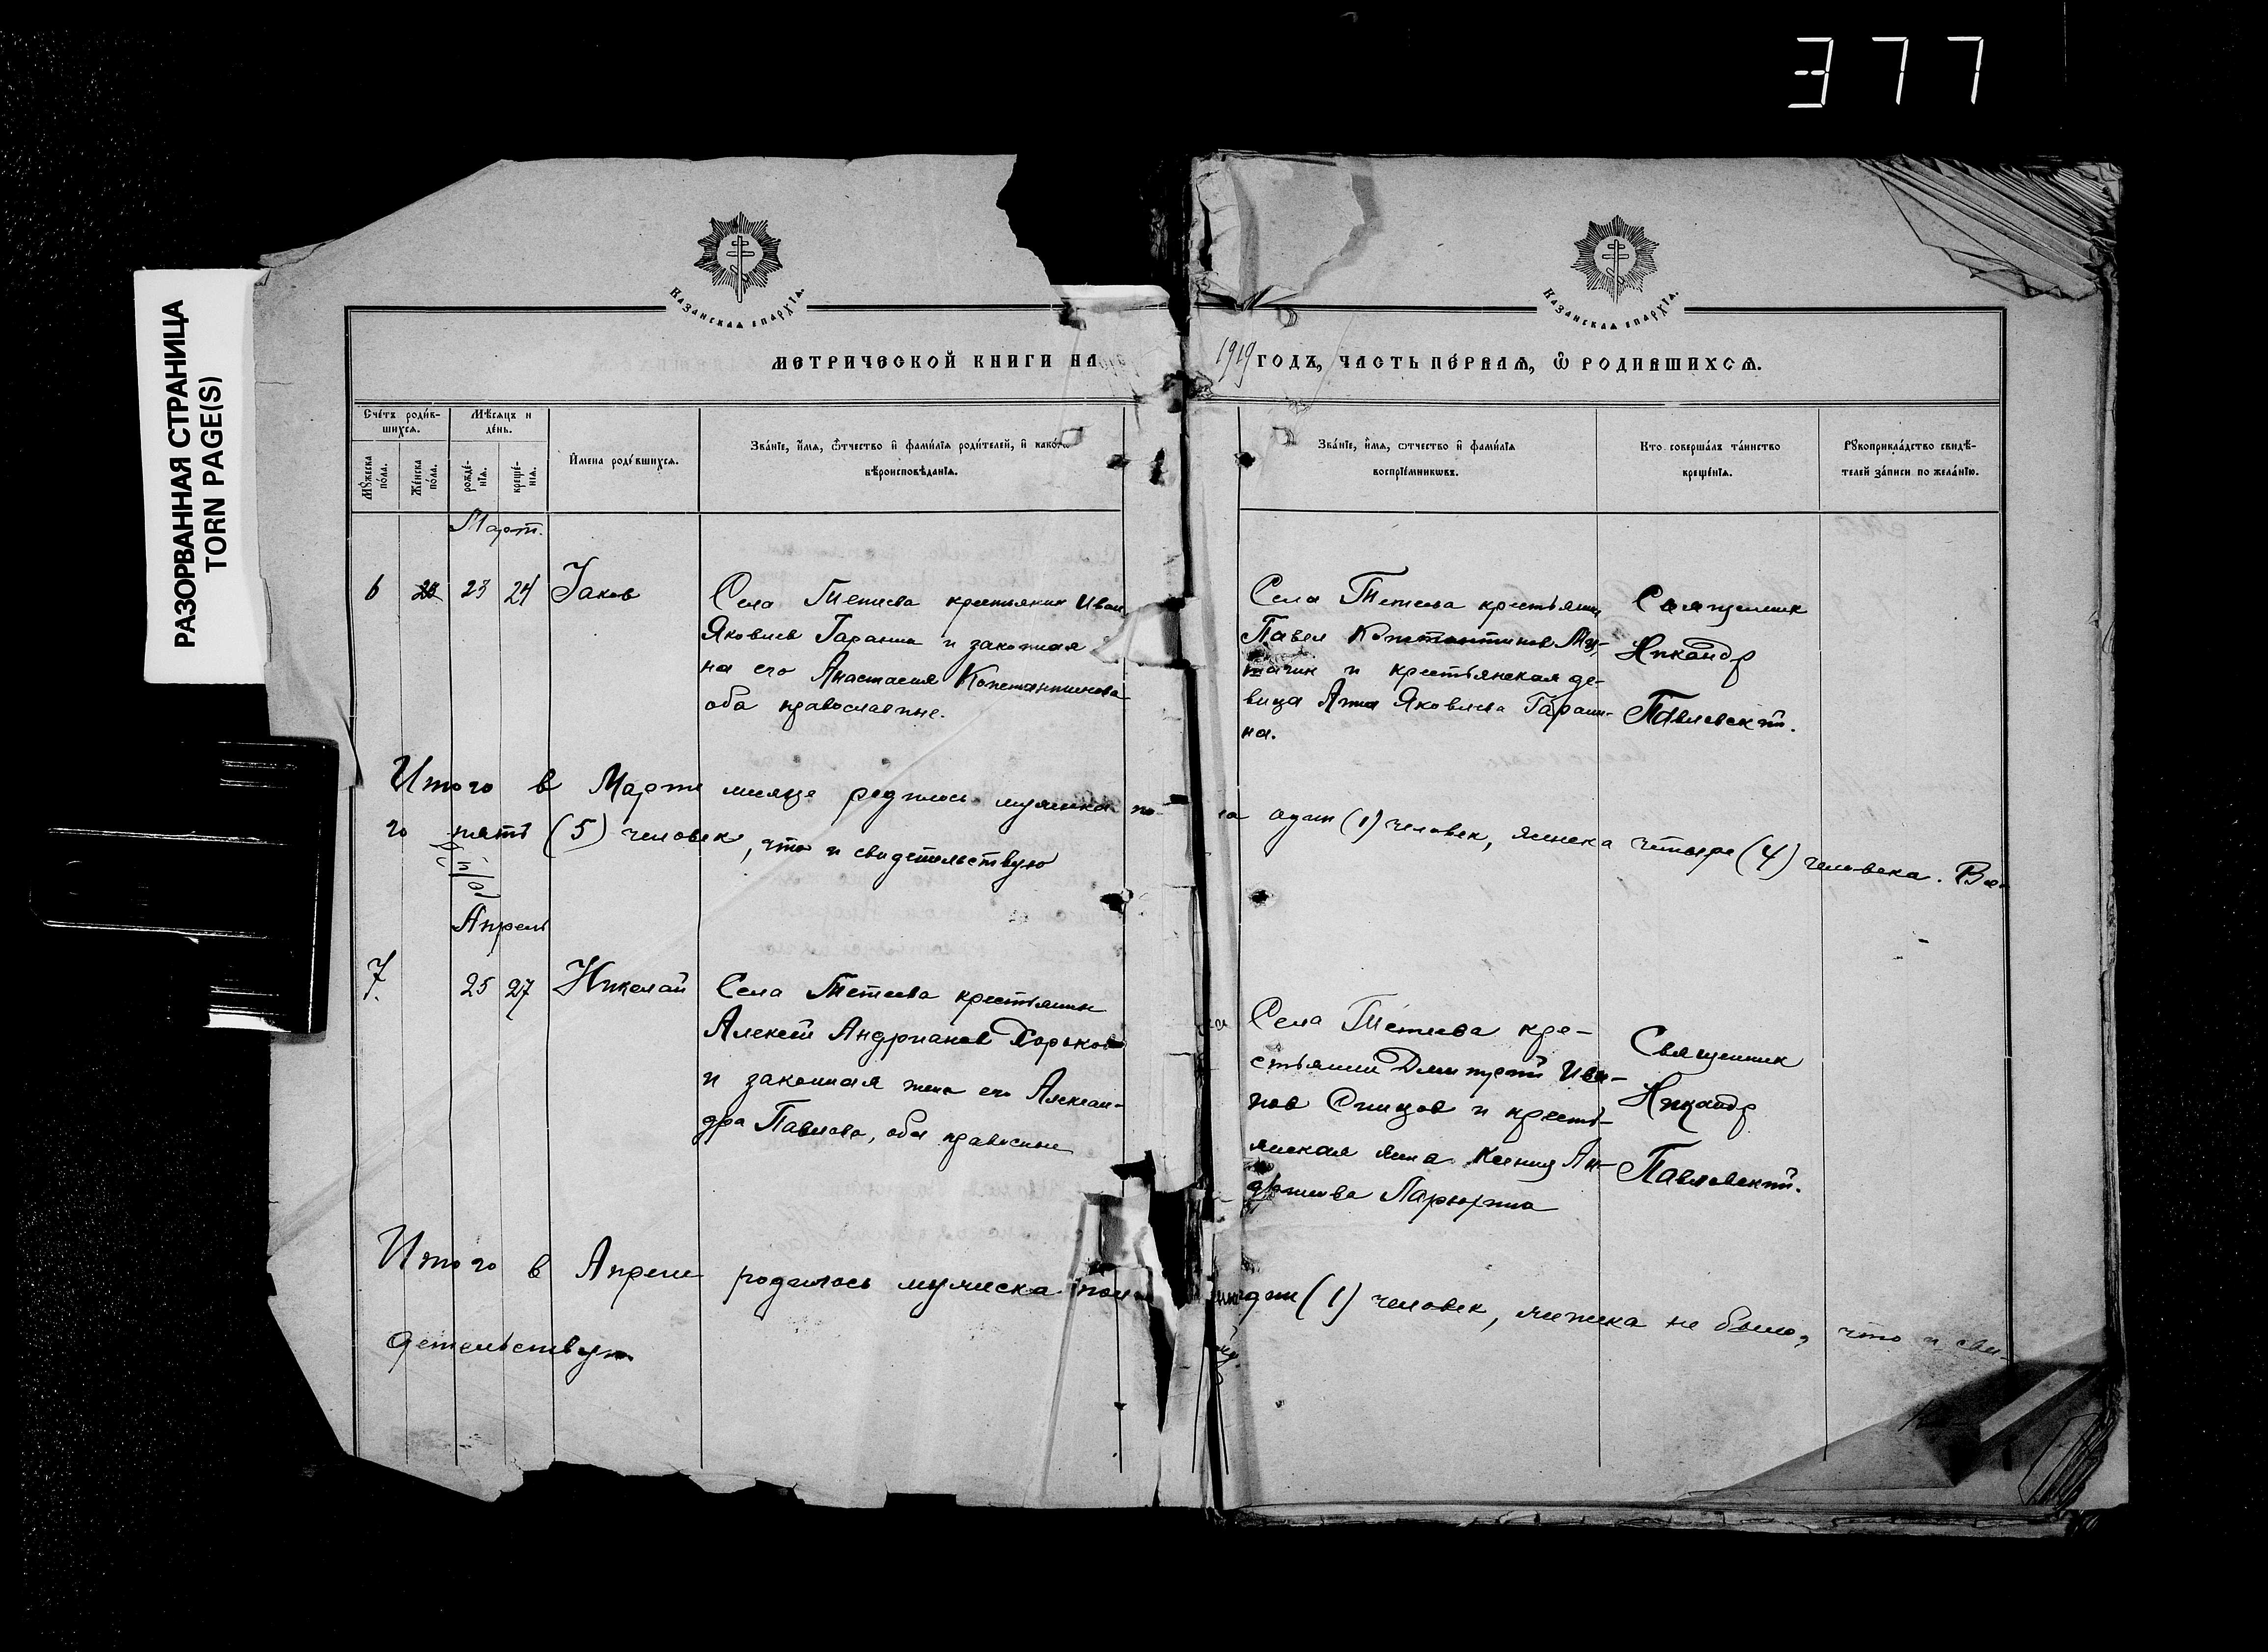 377
РАЗОРВАННАЯ СТРАНИЦА
TORN PAGE(S)
Казанская епархїа.
Казанская епархїа.
МЕТРИЧЕСКОЙ КНИГИ НА 1919 ГОДЪ, ЧАСТЬ ПЕ́РВАЯ, Ѿ РОДИВШИХСЯ.
Сче́тъ роди́в-
шихся.
Мѣсяцъ и
де́нь.
Му́жеска по́ла.
Же́нска по́ла.
рожде́-
нїя.
креще́-
нїя.
И҆мена роди́вшихся.
Зва́нїе, и҆́мя, ѻ҆́тчество и҆ фами́лїя роди́телей, и҆ како́гѡ
вѣроисповѣ́данїя.
Зва́нїе, и҆́мя, ѻ҆тчество и҆ фами́лїя
воспрїе́мниковъ.
Кто соверша́лъ та́инство
креще́нїя.
Рꙋкоприкла́дство свидѣ́-
телей за́писи по жела́нїю.
Март.
6 23 24 Іаков
Села Тетеева крестьянин Иван
Яковлев Гарашин и законная
на его Анастасия Константинова
оба православные.
Села Тетеева крестьянин
Павел Константинов
и крестьянская де-
вица Анна Яковлева Гараши-
на.
Священник
Никандр
Павловский.
Итого в Марте месяце родилось мужска по- ла один (1) человек, женска четыре (4) человека. Все-
го пять (5) человек, что и свидетельствую
Апрель
7. 25 27 Николай
Села Тетеева крестьянин
Алексей Андрианов Хорьков
и законная жена его Алексан-
дра Павлова, оба православные
Села Тетеева кре-
стьянин Димитрий Ива-
нов Спицов и кресть-
янская жена Ксения Ан-
Священник
Никандр
Павловский.
Итого в Апреле родилось мужска пола один (1) человек, женска не было, что и сви-
детельствую